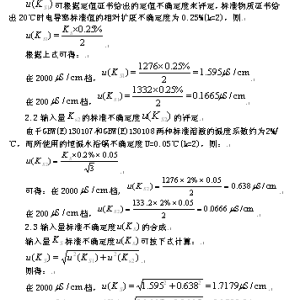 u(K₅₁)可根据定值证书给出的定值不确定度来评定,标准物质证书给
出20℃时电导率标准值的相对扩展不确定度为0.25%(k=2),则:
u(K₅₁) = K₅×0.25% / 2
根据上式可得:
在2000μS/cm档, u(K₅₁) = 1276×0.25% / 2 = 1.595μS/cm
在200μS/cm档, u(K₅₁) = 133.2×0.25% / 2 = 0.1665μS/cm
2.2 输入量 的标准不确定度 的评定
由于GBW(E)130107和GBW(E)130108两种标准溶液的温度系数约为2%/
℃,而所使用的恒温水浴锅不确定度U=0.05℃(k=2),则:
= K×0.2%×0.05 / √3
可得:在2000μS/cm档, = 1276×2%×0.05 / 2 = 0.638μS/cm
在200μS/cm档, = 133.2×2%×0.05 / 2 = 0.0666μS/cm
2.3 输入量标准不确定度 的合成
输入量 标准不确定度 可按下式计算:
则得:
在2000μS/cm档, = √1.595²+0.638² = 1.7179μS/cm
在200μS/cm档,